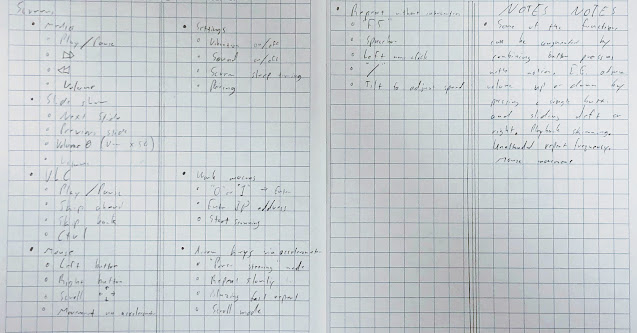 Screens
• Media
o Play/Pause
o Volume
• Slide show
o Next Slide
o Previous slide
o Volume
• VLC
o Play/Pause
o Skip ahead
o Skip back
o Ctrl
• Mouse
o Left button
o Right button
o Scroll
o Movement via accelerometer
• Settings
o Vibration on/off
o Sound on/off
o Screen sleep timing
o Pairing
o "0" or "1" → Enter
o Enter IP address
o Start Screening
• Arrow keys via accelerometer
o Repeat slowly
o Blazing fast repeat
o Scroll mode
• Repeat
o "F5"
o Spacebar
o Left click
o "/"
o Tilt to adjust speed
NOTES NOTES
• Some of the functions
can be augmented by
combining button presses
with motions. I.E. adjusting
volume up or down by
pressing a single button
and sliding left or
right. Playback skimming.
repeat frequency.
Mouse movement